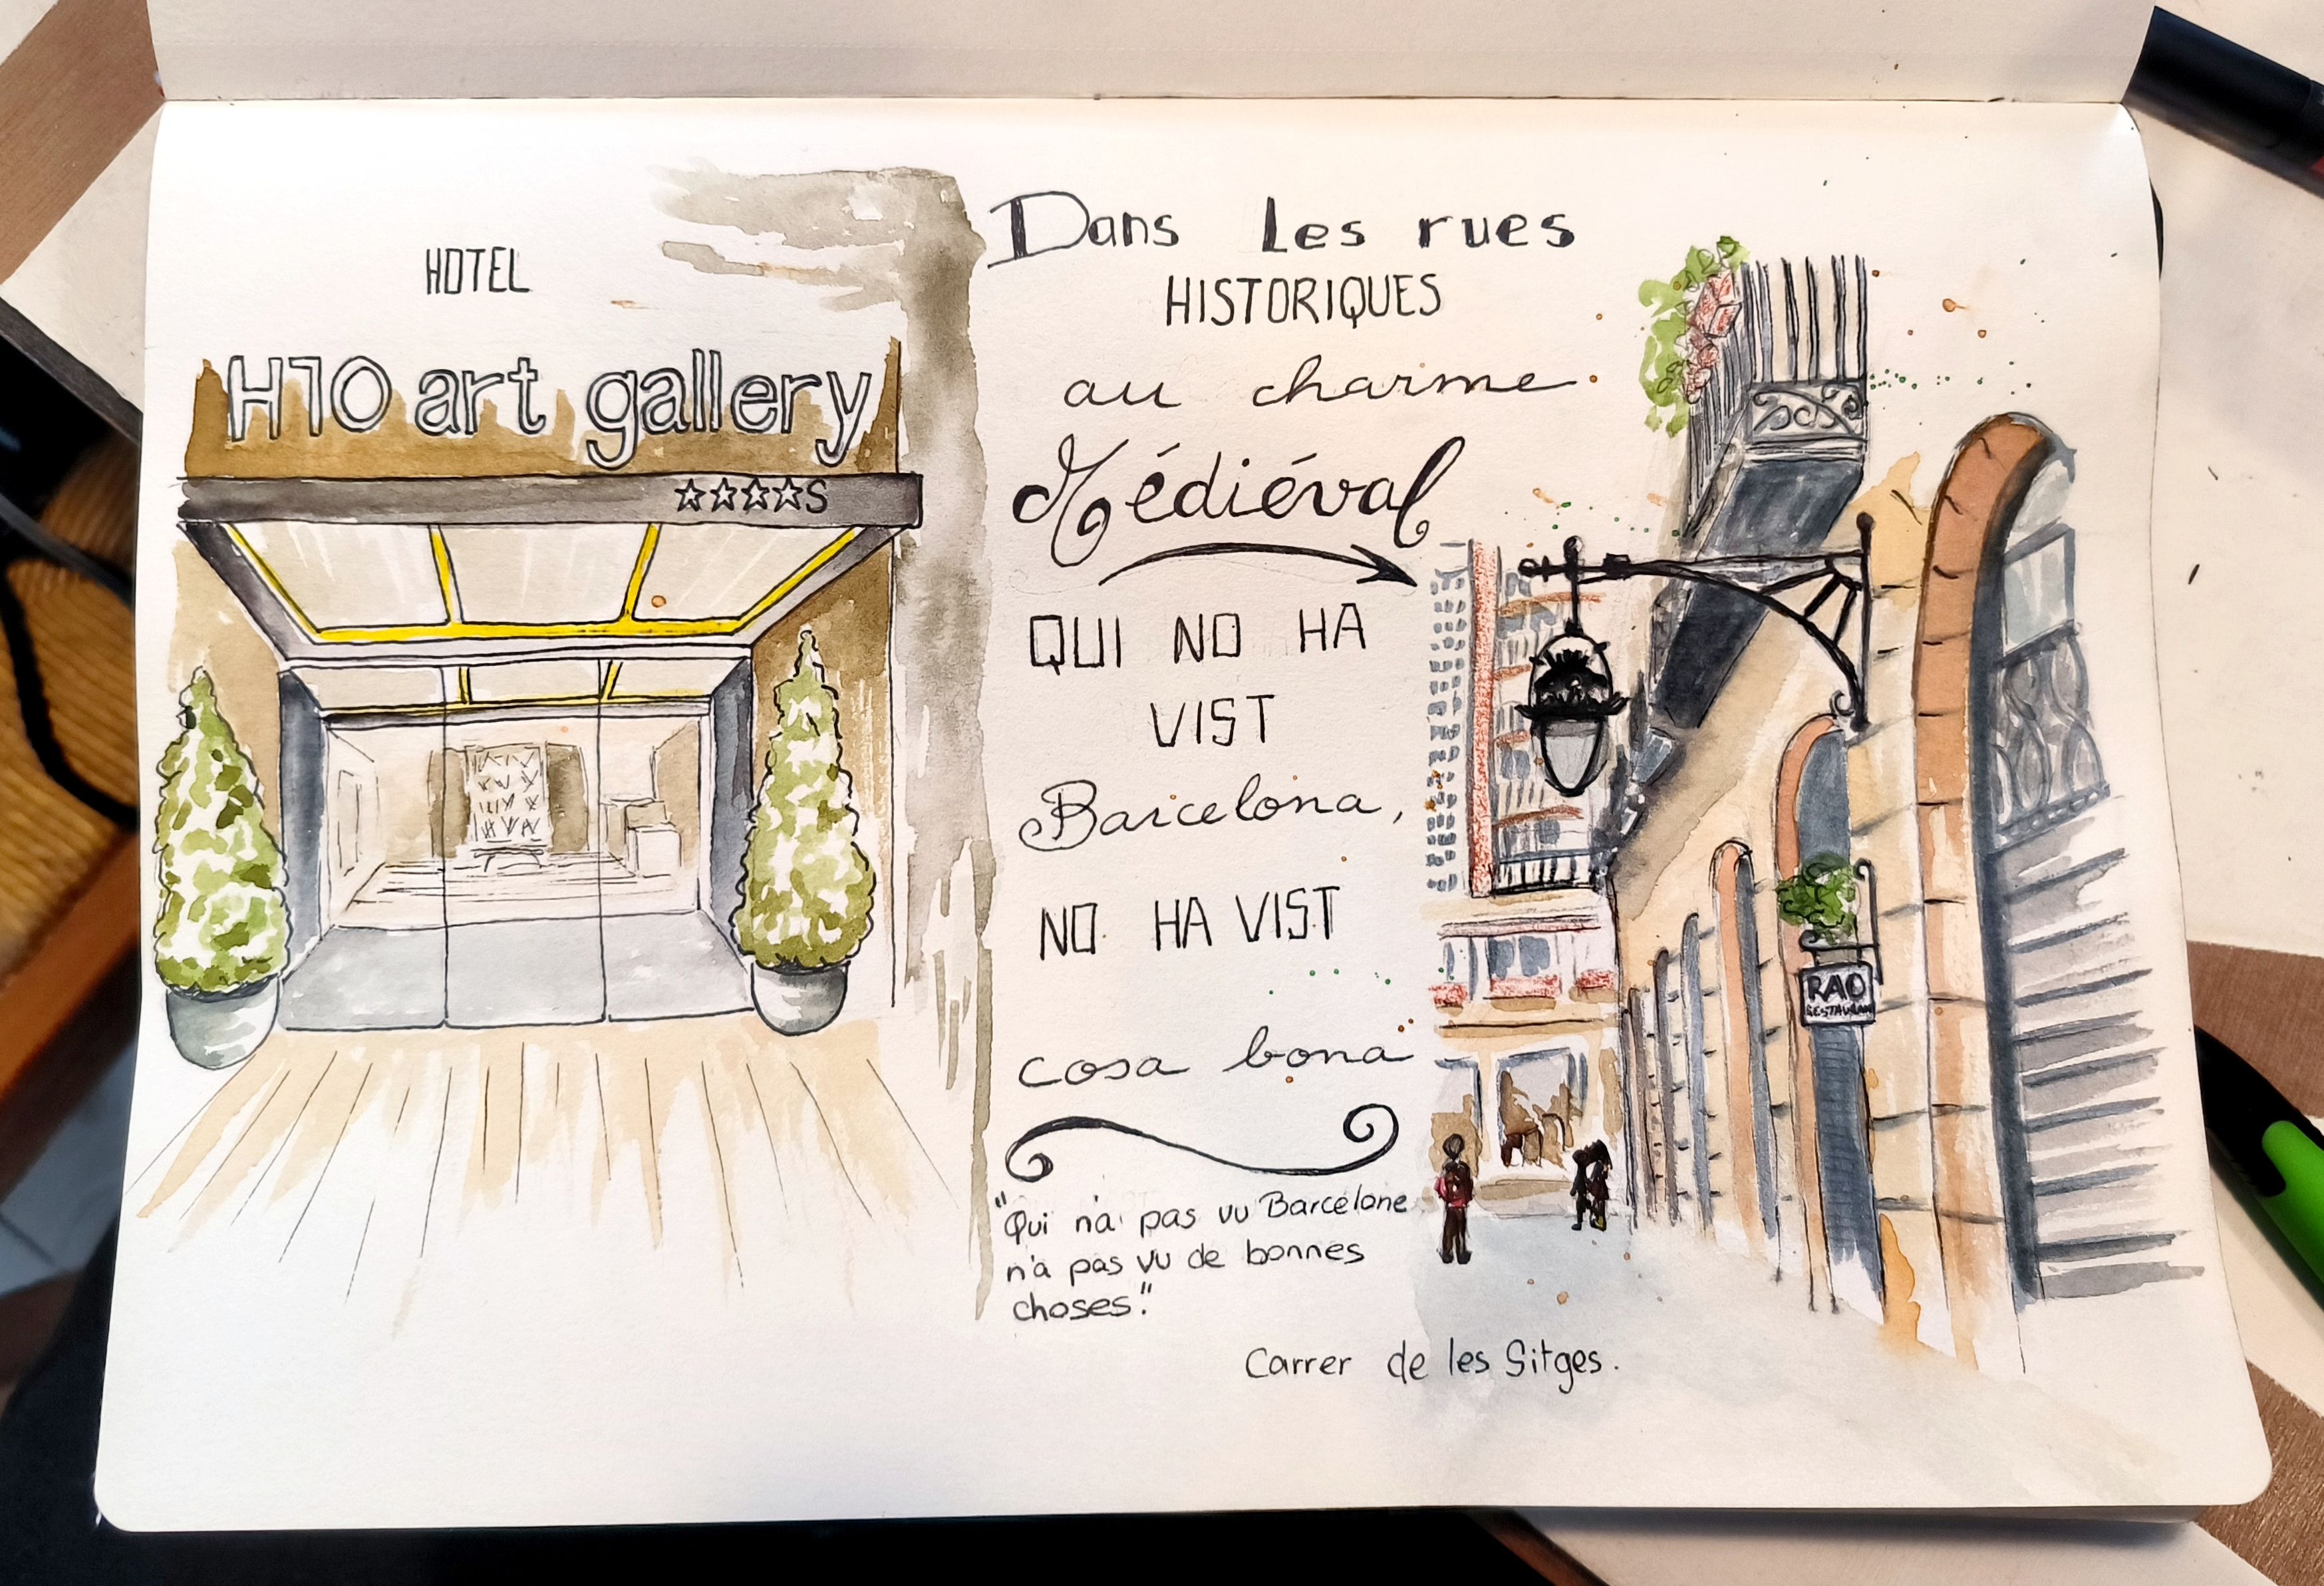 HOTEL
H10 art gallery
☆☆☆☆S
Dans les rues
HISTORIQUES
au charme
Médiéval
QUI NO HA
VIST
Barcelona,
NO HA VIST
cosa bona
"Qui n'a pas vu Barcelone
n'a pas vu de bonnes
choses."
RAO
RESTAURAN
Carrer de les Sitges.